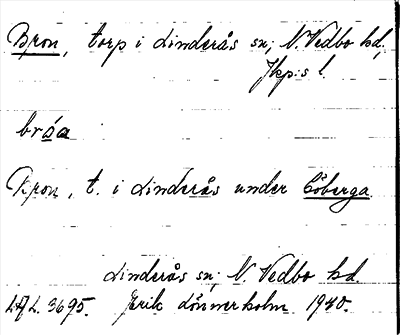 Bron, torp i Linderås sn; N. Vedbo hd,
Jkp:s l.
bróa
Bron, t. i Linderås under Cöberga
Linderås sn; N. Vedbo hd.
3695. Erik Lönnerholm 1940.